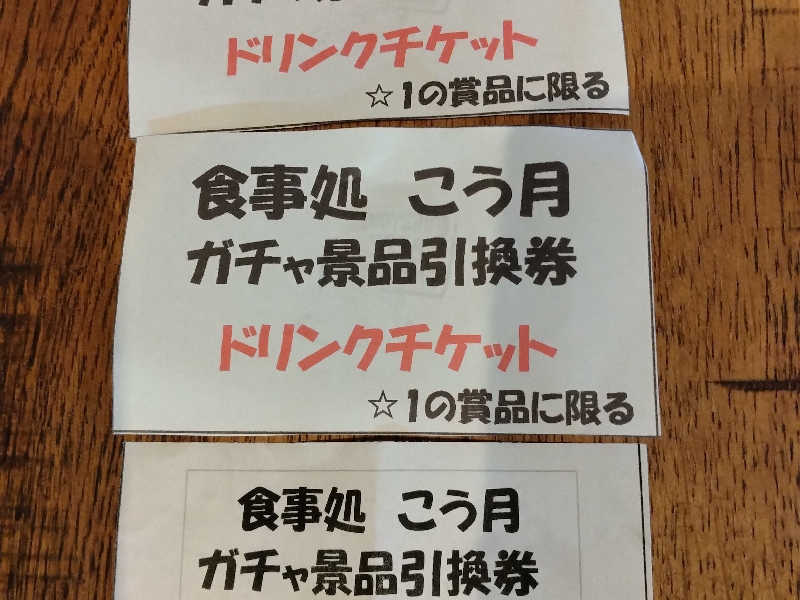 ドリンクチケット
☆1の賞品に限る
食事処 こう月
ガチャ景品引換券
ドリンクチケット
☆1の賞品に限る
食事処 こう月
ガチャ景品引換券